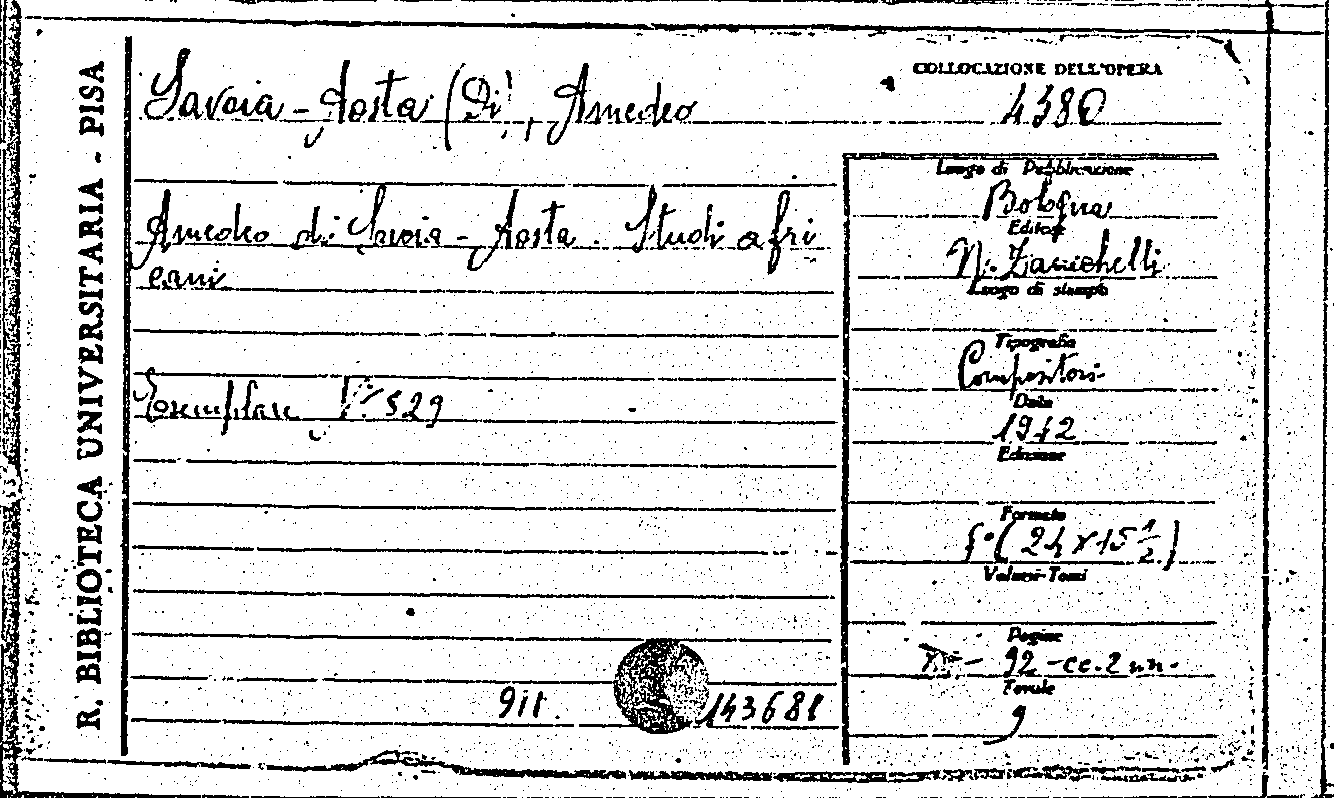 R. BIBLIOTECA UNIVERSITARIA - PISA
Savoia - Aosta (Di), Amedeo
COLLOCAZIONE DELL'OPERA
4380
Amedeo di Savoia - Aosta. Studi afri
cani
Esemplare N° 529
Luogo di Pubblicazione
Bologna
Editore
N. Zanichelli
Luogo di stampa
Tipografia
Compositori
Data
1942
Edizione
Formato
f° (24 x 15 1/2)
Volumi-Tomi
Pagine
92 - cc. 2 nn.
Tavole
9
143681